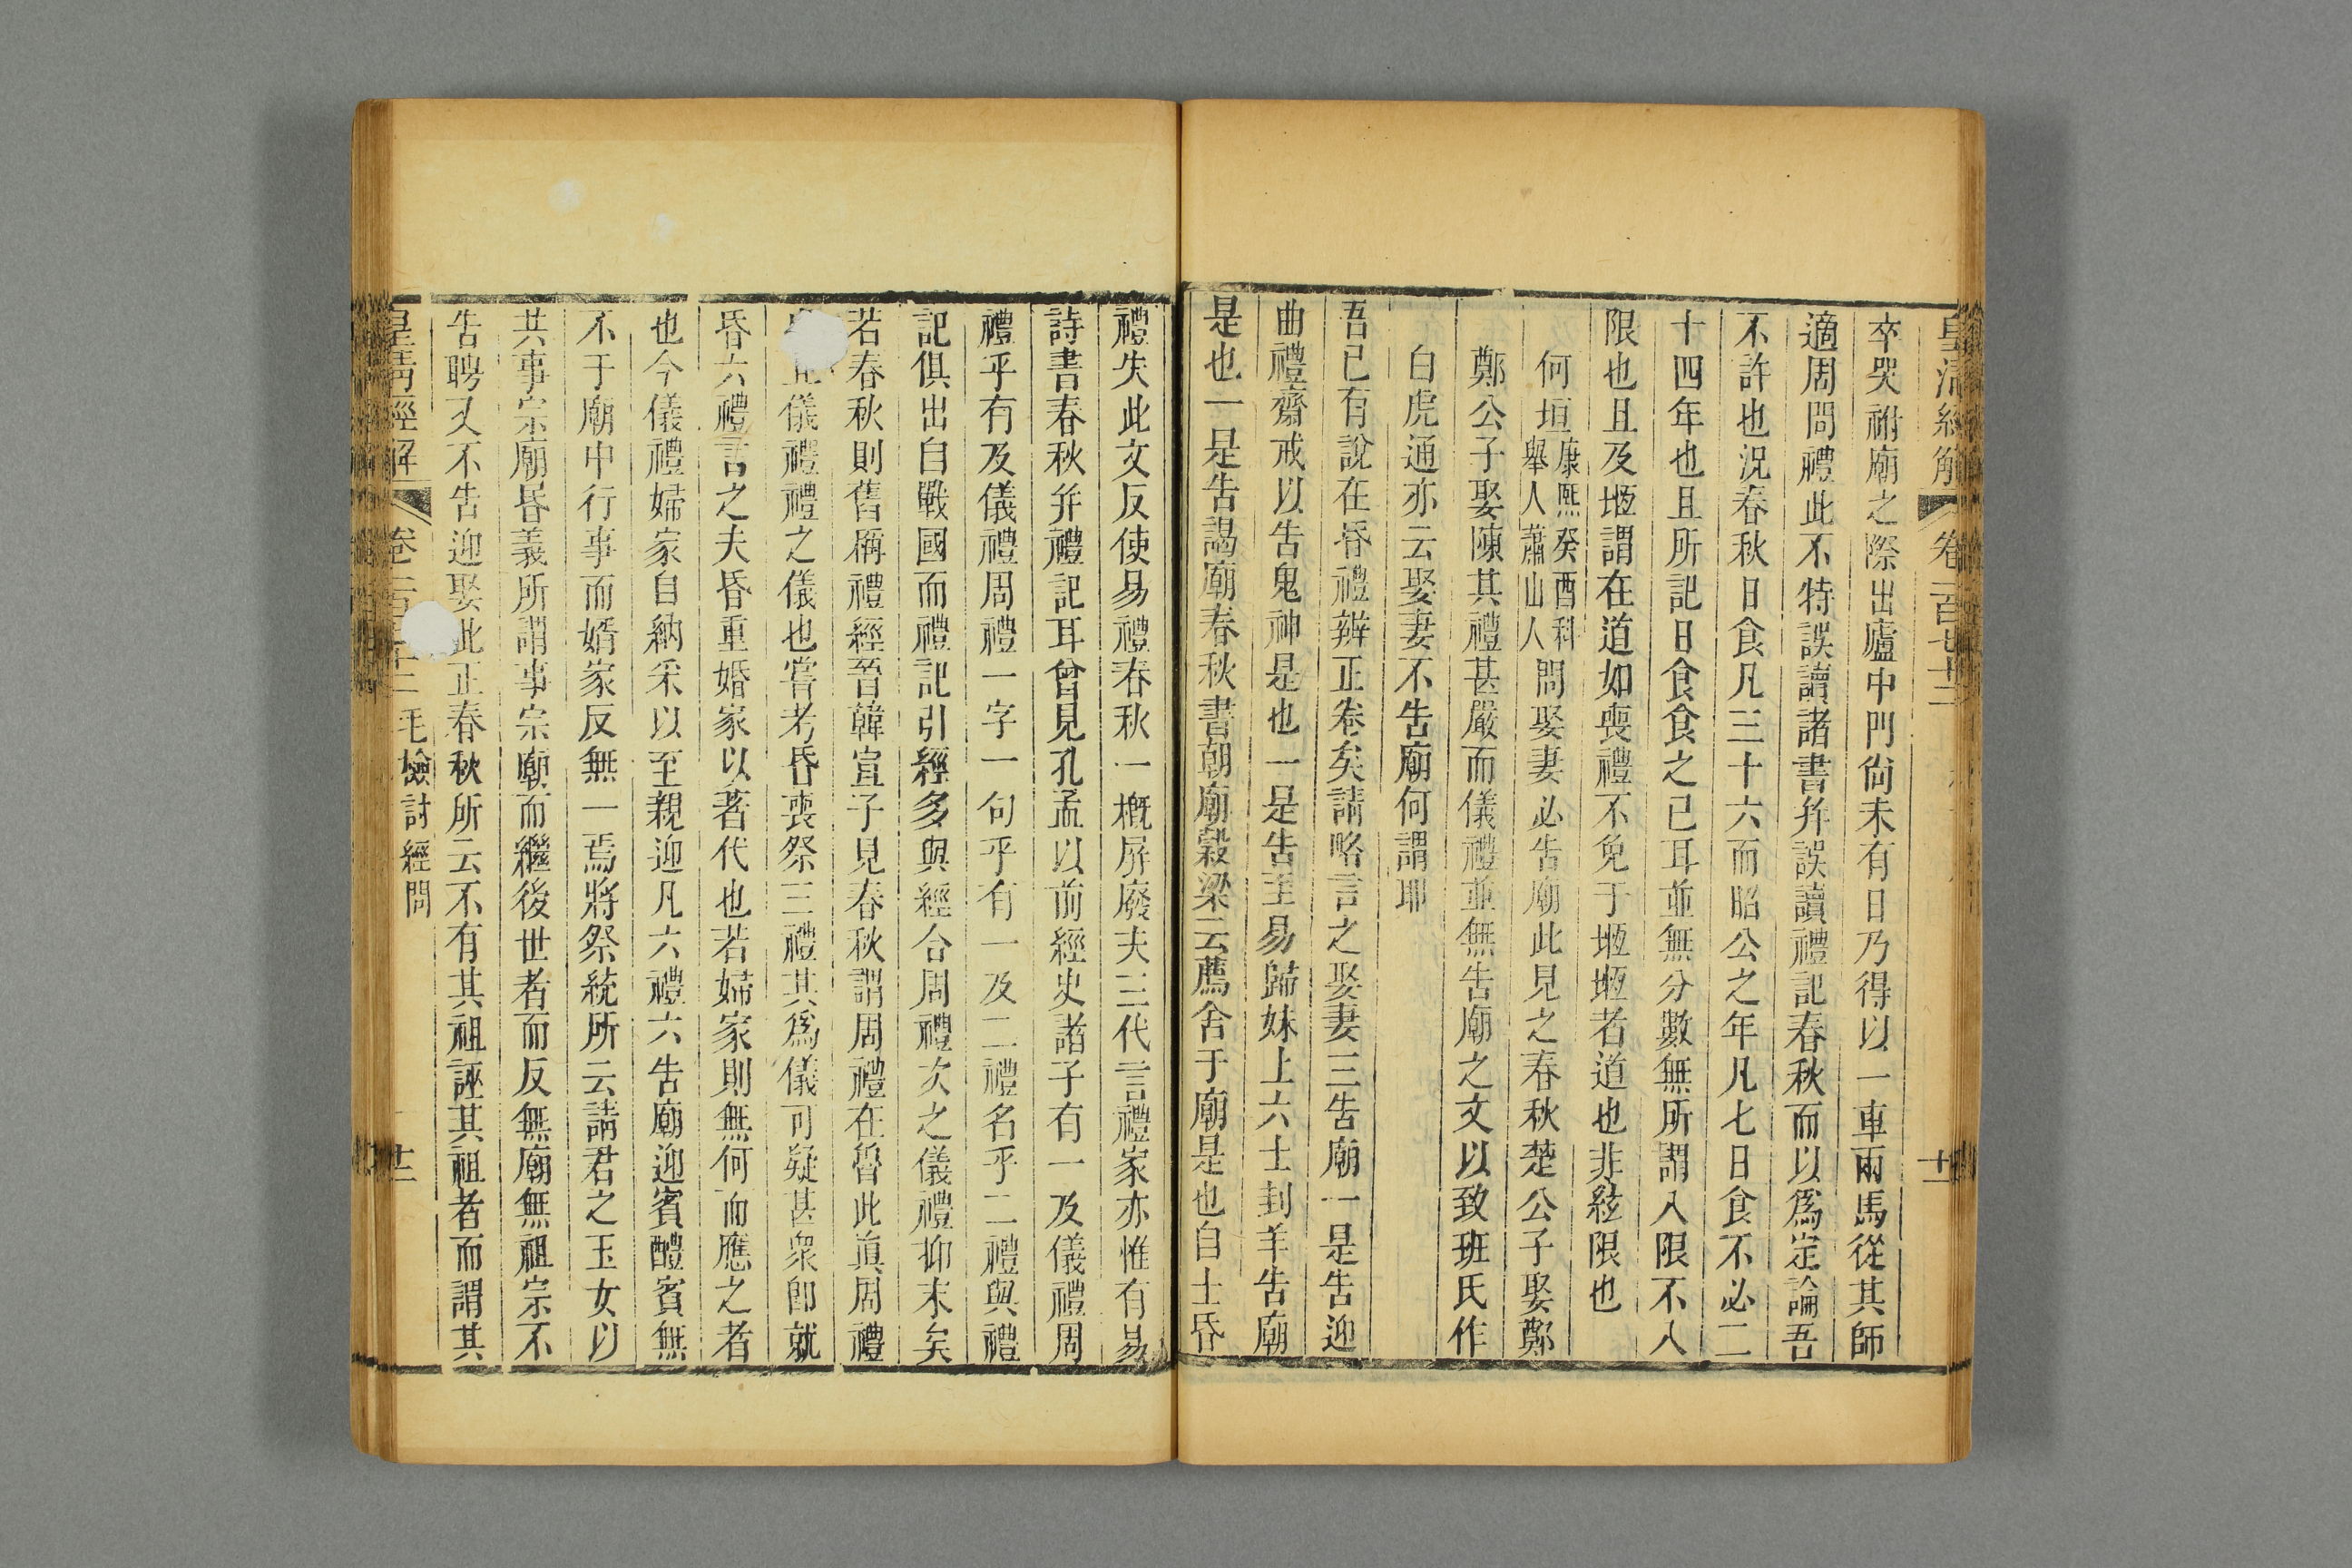 皇清經解 卷一百七十二 十二
卒哭祔廟之際出廬中門尙未有日乃得以一車兩馬從其師
適周問禮此不特誤讀諸書幷誤讀禮記春秋而以爲定論吾
不許也況春秋日食凡三十六而昭公之年凡七日食不必二
十四年也且所記日食食之已耳並無分數無所謂入限不入
限也且及堩謂在道如喪禮不免于堩堩者道也非絃限也
何垣康熙癸酉科舉人蕭山人問娶妻必告廟此見之春秋楚公子娶鄭
鄭公子娶陳其禮甚嚴而儀禮並無告廟之文以致班氏作
白虎通亦云娶妻不告廟何謂耶
吾已有說在昏禮辨正卷矣請略言之娶妻三告廟一是告迎
曲禮齋戒以告鬼神是也一是告至易歸妹上六士刲羊告廟
是也一是告謁廟春秋書朝廟穀梁云薦舍于廟是也自士昏
禮失此文反使易禮春秋一槪屏廢夫三代言禮家亦惟有易
詩書春秋幷禮記耳曾見孔孟以前經史諸子有一及儀禮周
禮乎有及儀禮周禮一字一句乎有一及二禮名乎二禮與禮
記俱出自戰國而禮記引經多與經合周禮次之儀禮抑末矣
若春秋則舊稱禮經晉韓宣子見春秋謂周禮在魯此眞周禮
儀禮禮之儀也嘗考昏喪祭三禮其爲儀可疑甚衆卽就
昏六禮言之夫昏重婚家以著代也若婦家則無何而應之者
也今儀禮婦家自納采以至親迎凡六禮六告廟迎賓醴賓無
不于廟中行事而婿家反無一焉將祭統所云請君之玉女以
共事宗廟昏義所謂事宗廟而繼後世者而反無廟無祖宗不
告聘又不告迎娶此正春秋所云不有其祖誣其祖者而謂其
皇淸經解 卷一百七十二 毛檢討經問 十二